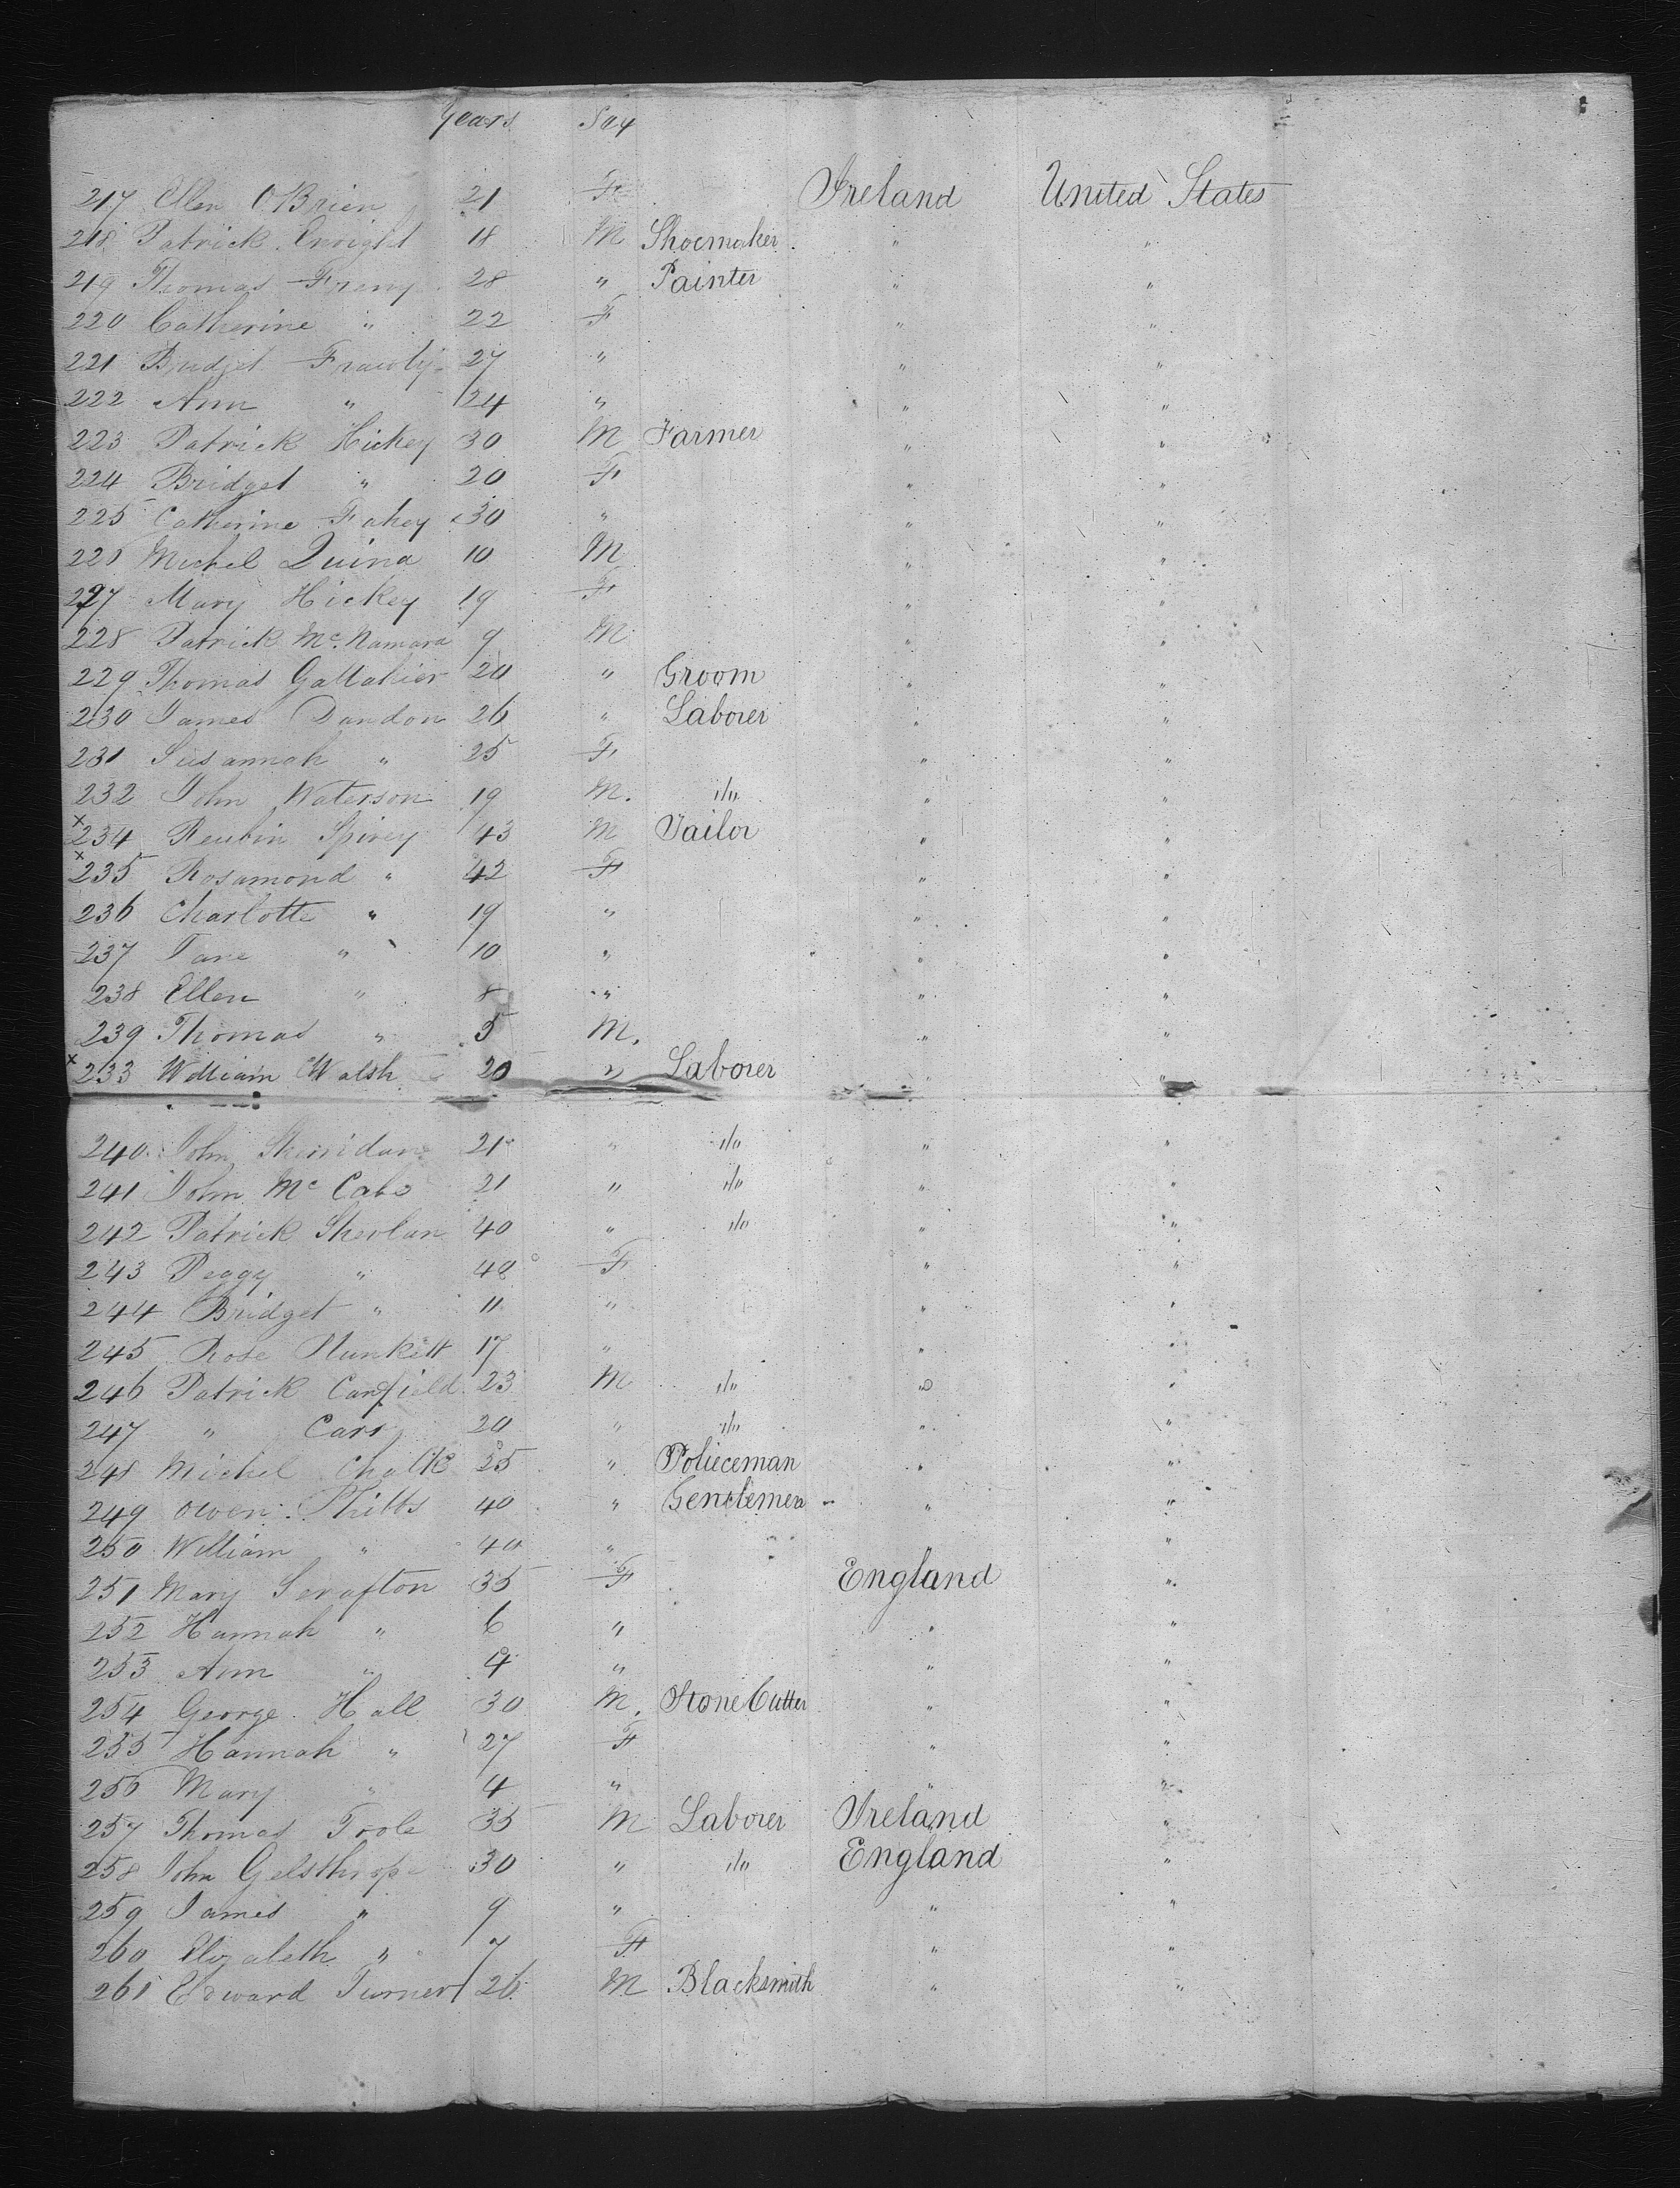 years Sex
217 Ellen O'Brien 21 F Ireland United States
218 Patrick Enright 18 M Shoemaker " "
219 Thomas 28 " Painter " "
220 Catherine " 22 F " "
221 Bridget Frawly 27 " " "
222 Ann " 24 " " "
223 Patrick Hickey 30 M Farmer " "
224 Bridget " 20 F " "
225 Catherine Fahey 30 " " "
226 Michel Quina 10 M " "
227 Mary Hickey 19 F " "
228 Patrick McNamara 9 M " "
229 Thomas Gallahier 20 " Groom " "
230 James Dandon 26 " Laborer " "
231 Susannah " 25 F " "
232 John Waterson 19 M. do " "
x 234 Reubin Spivey 43 M Tailor " "
x 235 Rosamond " 42 F " "
236 Charlotte " 19 " " "
237 Jane " 10 " " "
238 Ellen " 8 " " "
239 Thomas " 5 M. " "
x 233 William Walsh 20 " Laborer " "
240 John Sherridan 21 " do " "
241 John McCabe 21 " do " "
242 Patrick Sherlan 40 " do " "
243 Peggy " 48 F " "
244 Bridget " 11 " " "
245 Rose Plunkett 17 " " "
246 Patrick Canfield 23 M do " "
247 " Carr 20 " do " "
248 Michel 25 " Policeman " "
249 Owen Phibbs 40 " Gentlemen " "
250 William " 40 " "
251 Mary Scrafton 35 F England "
252 Hannah " 6 " " "
253 Ann " 4 " " "
254 George Hall 30 M. Stone Cutter " "
255 Hannah " 27 F " "
256 Mary " 4 " " "
257 Thomas Toole 35 M Laborer Ireland "
258 John Gelsthrope 30 " do England "
259 James " 9 " " "
260 Elizabeth " 7 F " "
261 Edward Turner 26 M Blacksmith " "